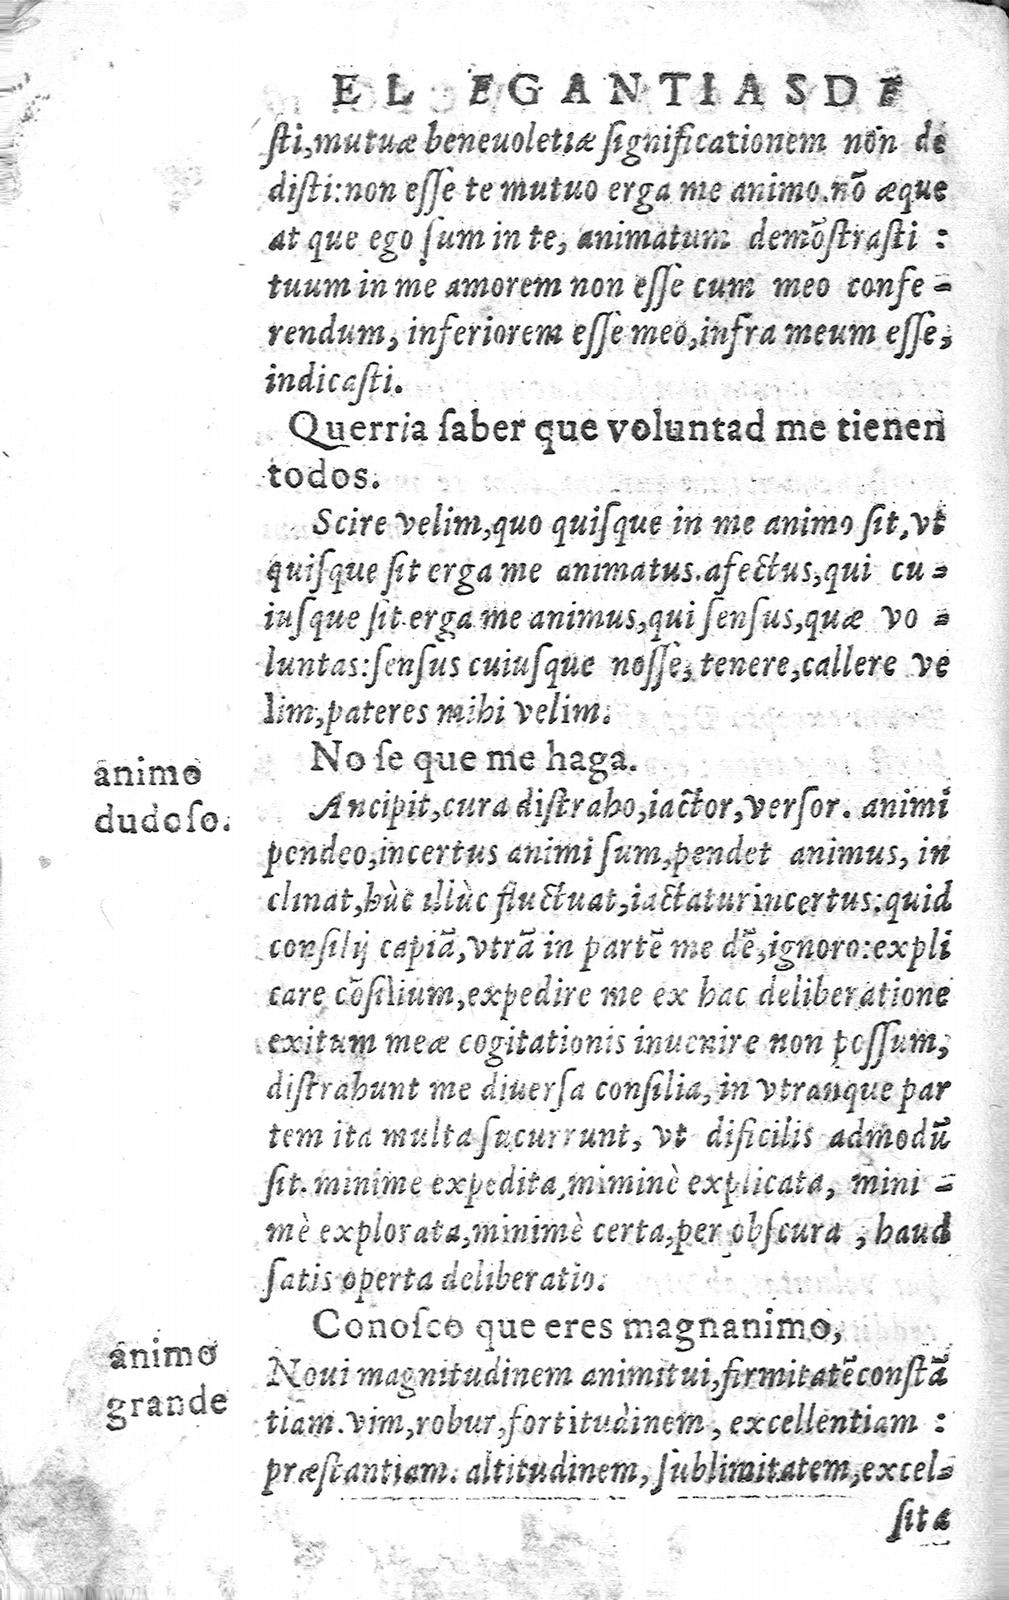 EL EGANTIASDE
ſti,mutuæ beneuoletiæ ſignificationem non de
diſti:non eſſe te mutuo erga me animo.nō æque
at que ego ſum in te, animatum demōſtraſti :
tuum in me amorem non eſſe cum meo confe-
rendum, inferiorem eſſe meo,infra meum eſſe,
indicaſti.
Querria ſaber que voluntad me tienen
todos.
Scire velim,quo quiſque in me animo ſit,vt
quiſque ſit erga me animatus.afectus,qui cu-
iuſque ſit erga me animus,qui ſenſus,quæ vo-
luntas:ſenſus cuiuſque noſſe,tenere,callere ve
lim,pateres mihi velim.
No ſe que me haga.
animo
dudoſo.
Ancipit,cura diſtraho,iactor,verſor. animi
pendeo,incertus animi ſum,pendet animus, in
clinat,hùc illùc fluctuat,iactatur incertus:quid
conſilij capiā,vtrā in partē me dē,ignoro:expli
care cōſilium,expedire me ex hac deliberatione
exitum meæ cogitationis inuenire non poſſum,
diſtrahunt me diuerſa conſilia,in vtranque par
tem ita multa ſucurrunt, vt dificilis admodū
ſit.minime expedita,miminè explicata, mini-
mè explorata,minimè certa,per obſcura , haud
ſatis operta deliberatio.
Conoſco que eres magnanimo,
animo
grande
Noui magnitudinem animi tui,firmitatē conſtā
tiam.vim,robur,fortitudinem, excellentiam :
præſtantiam.altitudinem,ſublimitatem,excel-
ſita